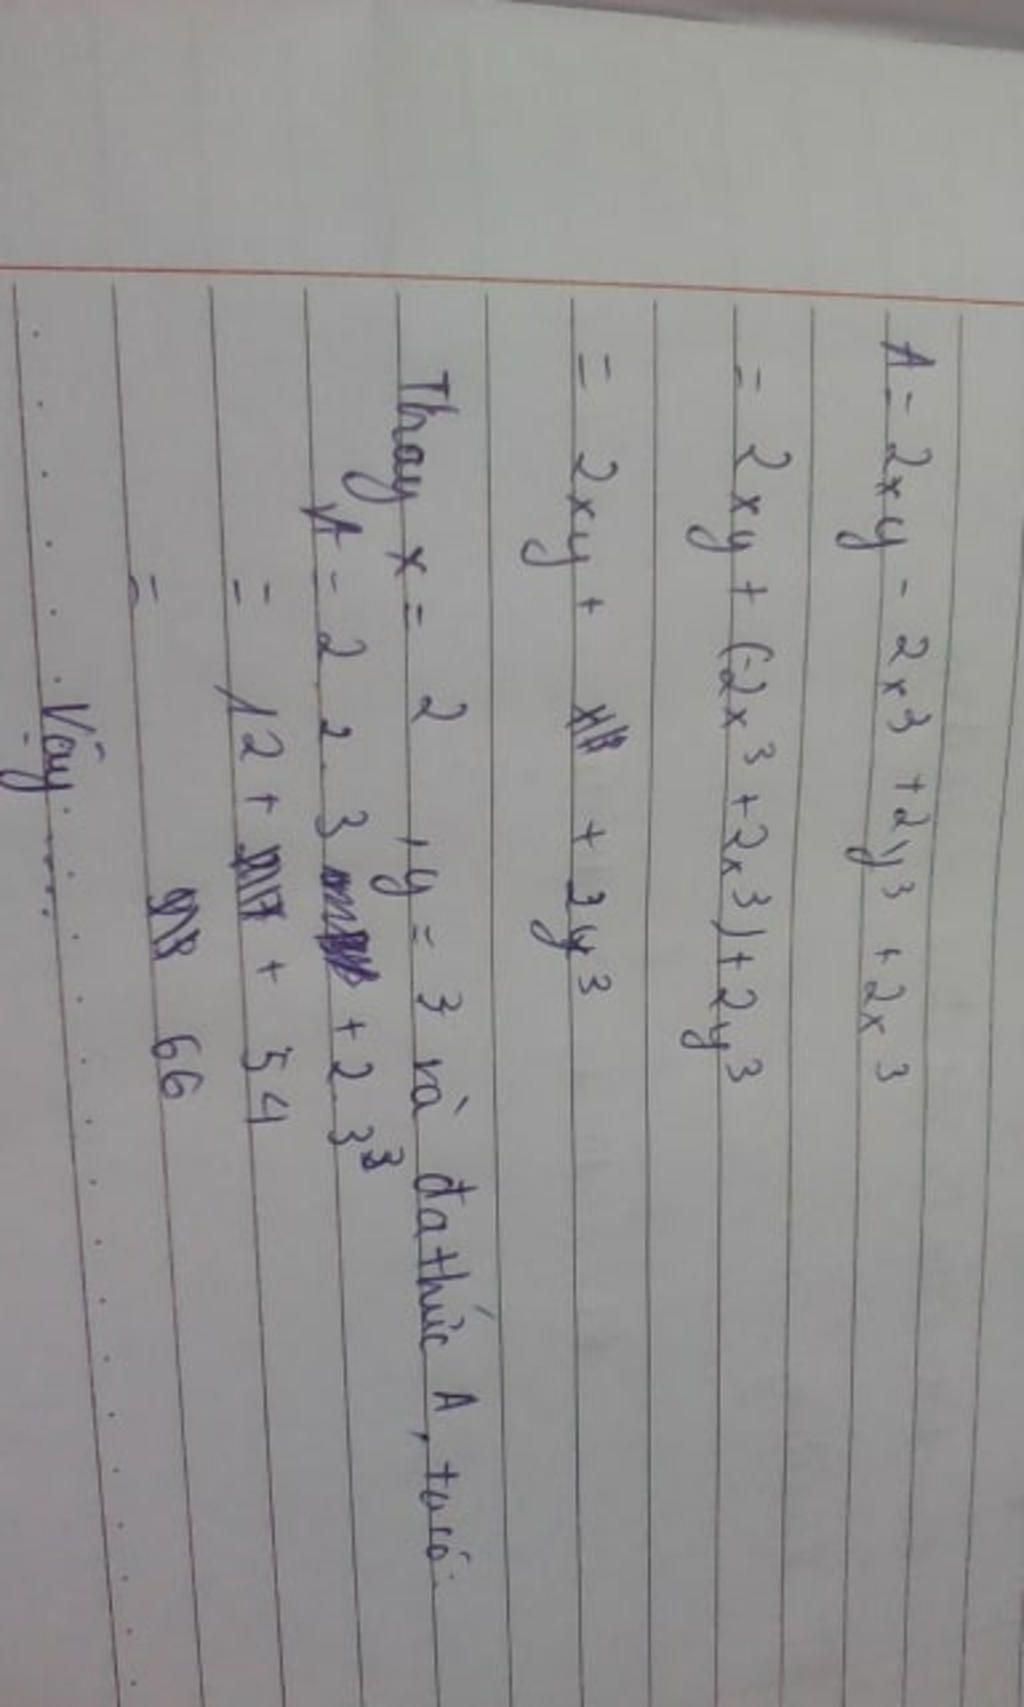 A = 2xy - 2x³ + 2y³ + 2x³
= 2xy + (-2x³ + 2x³) + 2y³
= 2xy + + 3y³
Thay x = 2 , y = 3 và đa thức A, ta có:
A = 2 . 2 . 3 + 2 . 3³
= 12 + + 54
= 66
Vậy .....